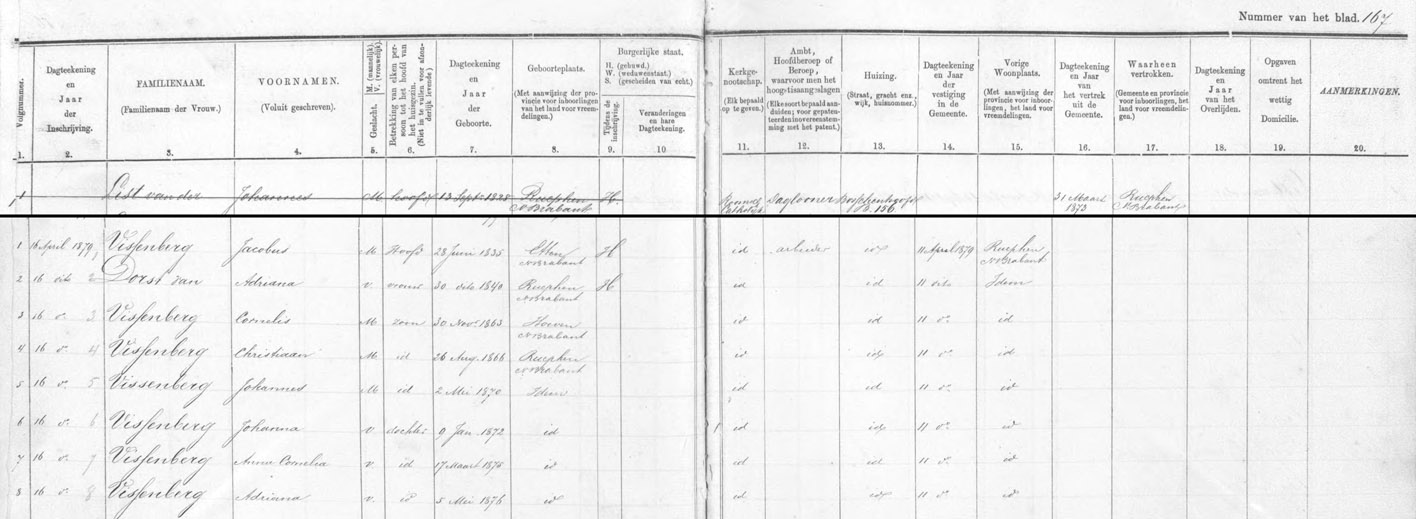 Nummer van het blad. 167
Volgnummer.
Dagteekening
en
Jaar
der
Inschrijving.
FAMILIENAAM.
(Familienaam der Vrouw.)
VOORNAMEN.
(Voluit geschreven).
Geslacht. M. (mannelijk). V. (vrouwelijk).
Betrekking van elken persoon tot het hoofd van het huisgezin.
Dagteekening
en
Jaar
der
Geboorte.
Geboorteplaats.
(Met aanwijzing der provincie voor inboorlingen, van het land voor vreemdelingen.)
Burgerlijke staat.
H. (gehuwd.)
W. (weduwenstaat.)
S. (gescheiden van echt.)
Tijdens de inschrijving.
Veranderingen
en hare
Dagteekening.
Kerkgenootschap.
(Elk bepaald op te geven.)
Ambt,
Hoofdberoep of
Beroep,
Huizing.
(Straat, gracht enz., wijk, huisnommer.)
Dagteekening
en Jaar
der
vestiging
in de
Gemeente.
Vorige
Woonplaats.
(Met aanwijzing der provincie voor inboorlingen, het land voor vreemdelingen.)
Dagteekening
en Jaar
van
het vertrek
uit de
Gemeente.
Waarheen
vertrokken.
(Gemeente en provincie voor inboorlingen, het land voor vreemdelingen.)
Dagteekening
en
Jaar
van het
Overlijden.
Opgaven
omtrent het
wettig
Domicilie.
AANMERKINGEN.
1. 2. 3. 4. 5. 6. 7. 8. 9. 10 11. 12. 13. 14. 15. 16. 17. 18. 19. 20.
1 List van der Johannes M hoofd 13 Sept. 1828 Rucphen N Brabant H. Daglooner 31 Maart 1873 Rucphen N Brabant
1 16 April 1879 Vissenberg Jacobus M Hoofd 28 Juni 1835 Etten N Brabant H id arbeider id 11 April 1879 Rucphen N Brabant
2 16 dito 2 Dorst van Adriana v. vrouw 30 dito 1840 Rucphen N Brabant H id id 11 dito Idem
3 16 d. 3 Vissenberg Cornelis M zoon 30 Nov. 1863 Hoeven N Brabant id id 11 d. id
4 16 d. 4 Vissenberg Christiaan M id 26 Aug. 1866 Rucphen N Brabant id id 11 d. id
5 16 d. 5 Vissenberg Johannes M id 2 Mei 1870 Idem id id 11 d. id
6 16 d. 6 Vissenberg Johanna v. dochter 9 Jan. 1872 id id id 11 d. id
7 16 d. 7 Vissenberg Anna Cornelia v. id 17 Maart 1875 id id id 11 d. id
8 16 d. 8 Vissenberg Adriana v. id 5 Mei 1876 id id id 11 d. id